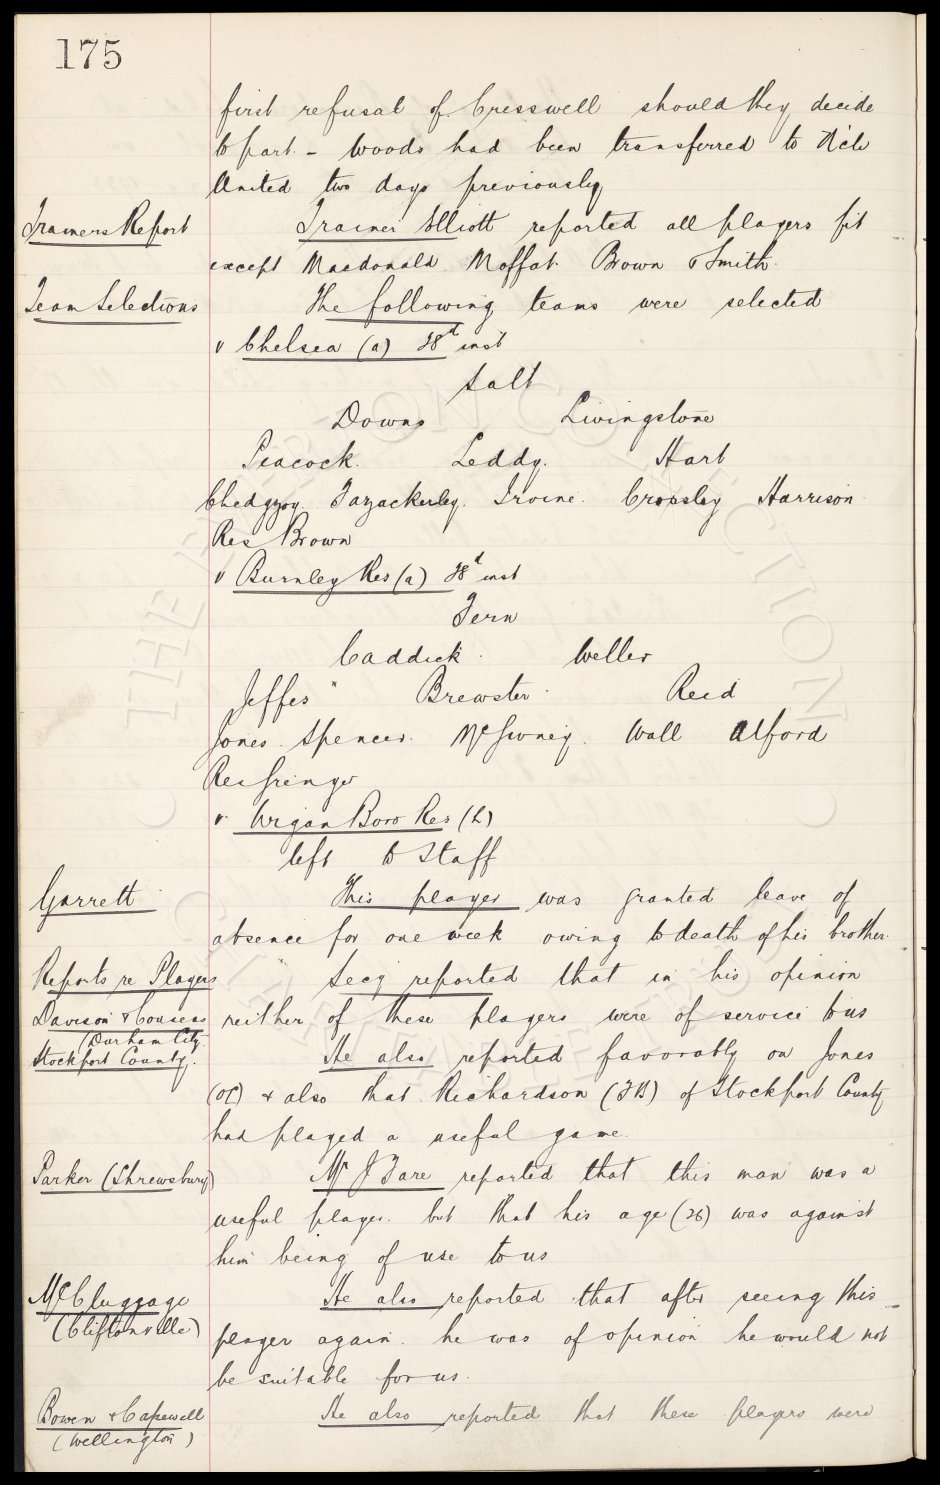 175
first refusal of Cresswell should they decide
to part. - Woods had been transferred to N'cle
United two days previously
Trainers Report
Trainer Elliott reported all players fit
except Macdonald. Moffat. Brown & Smith.
Team Selections
The following teams were selected
v Chelsea (a) 28th inst
Salt
Downs Livingstone
Peacock. Leddy. Hart
Chedgzoy Fazackerley. Irvine. Crossley Harrison
Res Brown
v Burnley Res (a) 28th inst
Fern
Caddick. Weller
Jeffes Brewster Reid
Jones. Spencer. McGivney. Wall Alford
Res Grenyer
v Wigan Boro Res (h)
left to Staff
Garrett
This player was granted leave of
absence for one week owing to death of his brother.
Reports re Players
Secy reported that in his opinion
Davison & Cousens
neither of these players were of service to us
(Durham City.
Stockport County.
He also reported favorably on Jones
(OL) & also that Richardson (FB) of Stockport County
had played a useful game.
Parker (Shrewsbury)
Mr J Fare reported that this man was a
useful player. but that his age (26) was against
him being of use to us
McCluggage
(Cliftonville)
He also reported that after seeing this
player again. he was of opinion he would not
be suitable for us.
Bowen & Capewell
(Wellington)
He also reported that these players were
THE EVERTON COLLECTION